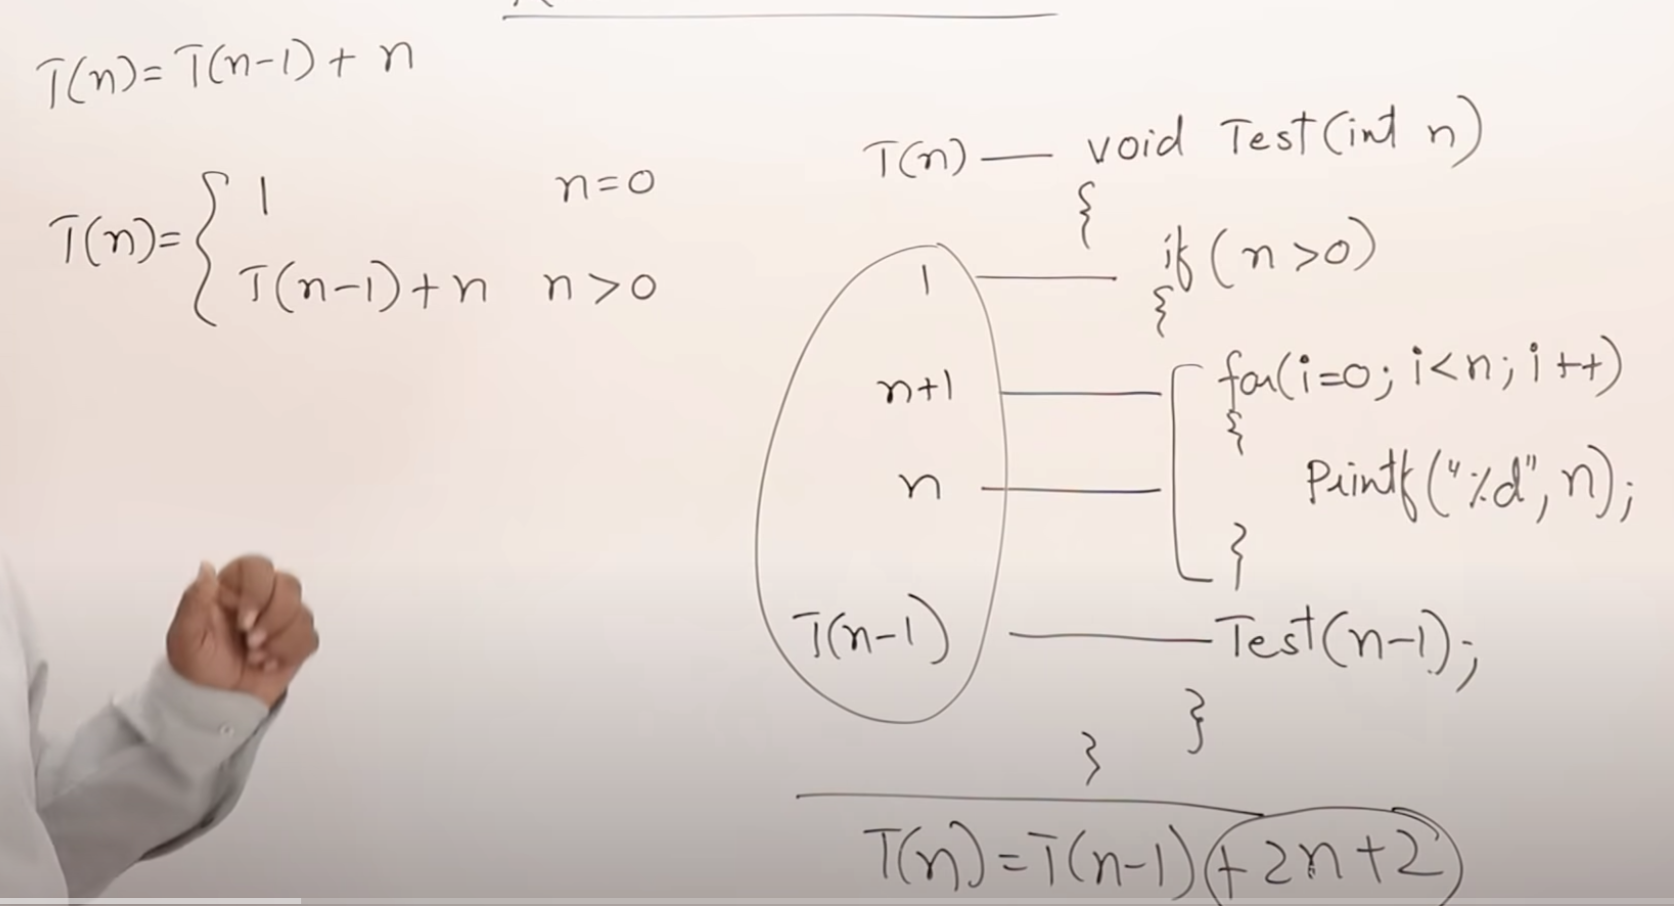 T(n)=T(n-1)+n
T(n)={ 1 n=0
T(n-1)+n n>0
T(n) — void Test(int n)
{
1 — if(n>0)
{
n+1 — for(i=0; i<n; i++)
{
n — Printf("%d", n);
}
T(n-1) — Test(n-1);
}
}
T(n)=T(n-1)+2n+2